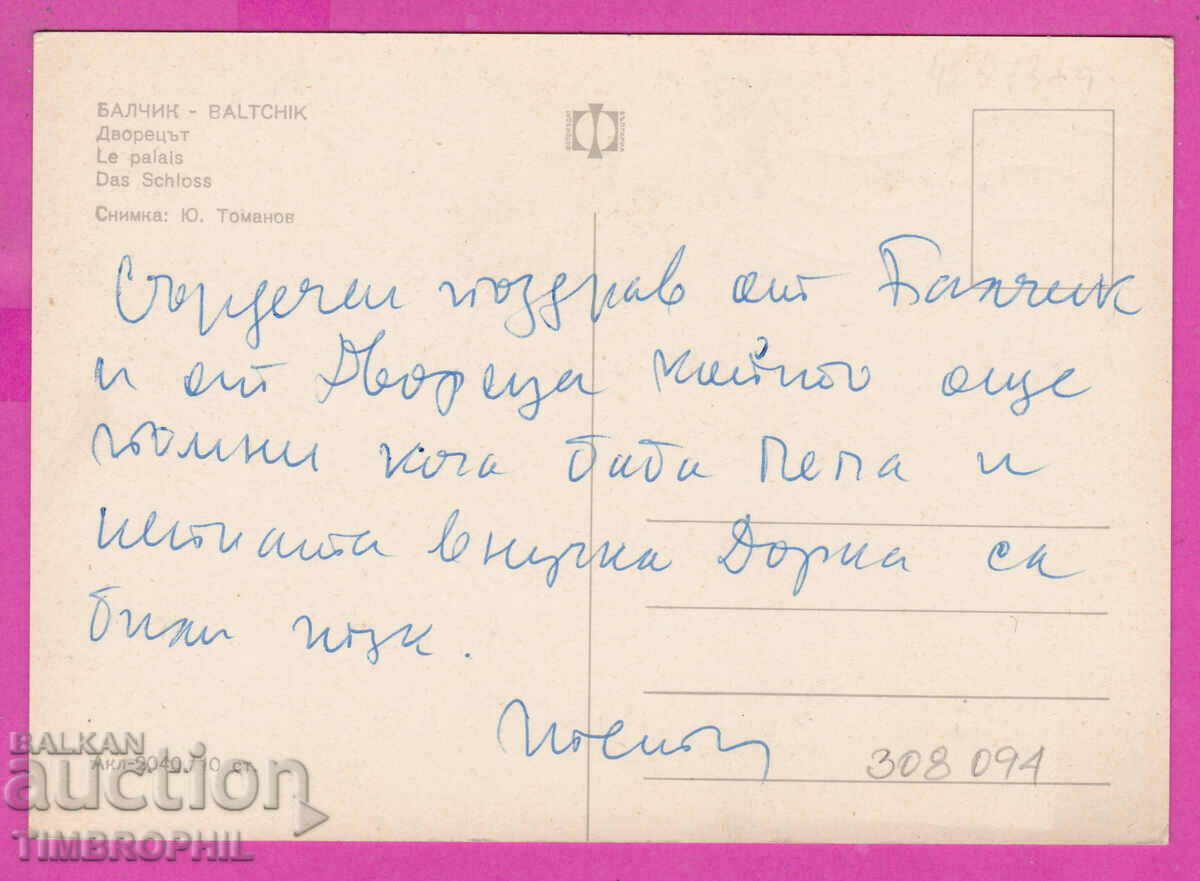 БАЛЧИК - BALTCHIK
Дворецът
Le palais
Das Schloss
Снимка: Ю. Томанов
Сърдечен поздрав от Балчик
и от Двореца който още
помни кога баба Пепа и
внучка Дорка са
били тук.
Акл-2040/10 ст.
308 094
BALKAN
auction
TIMBROPHIL